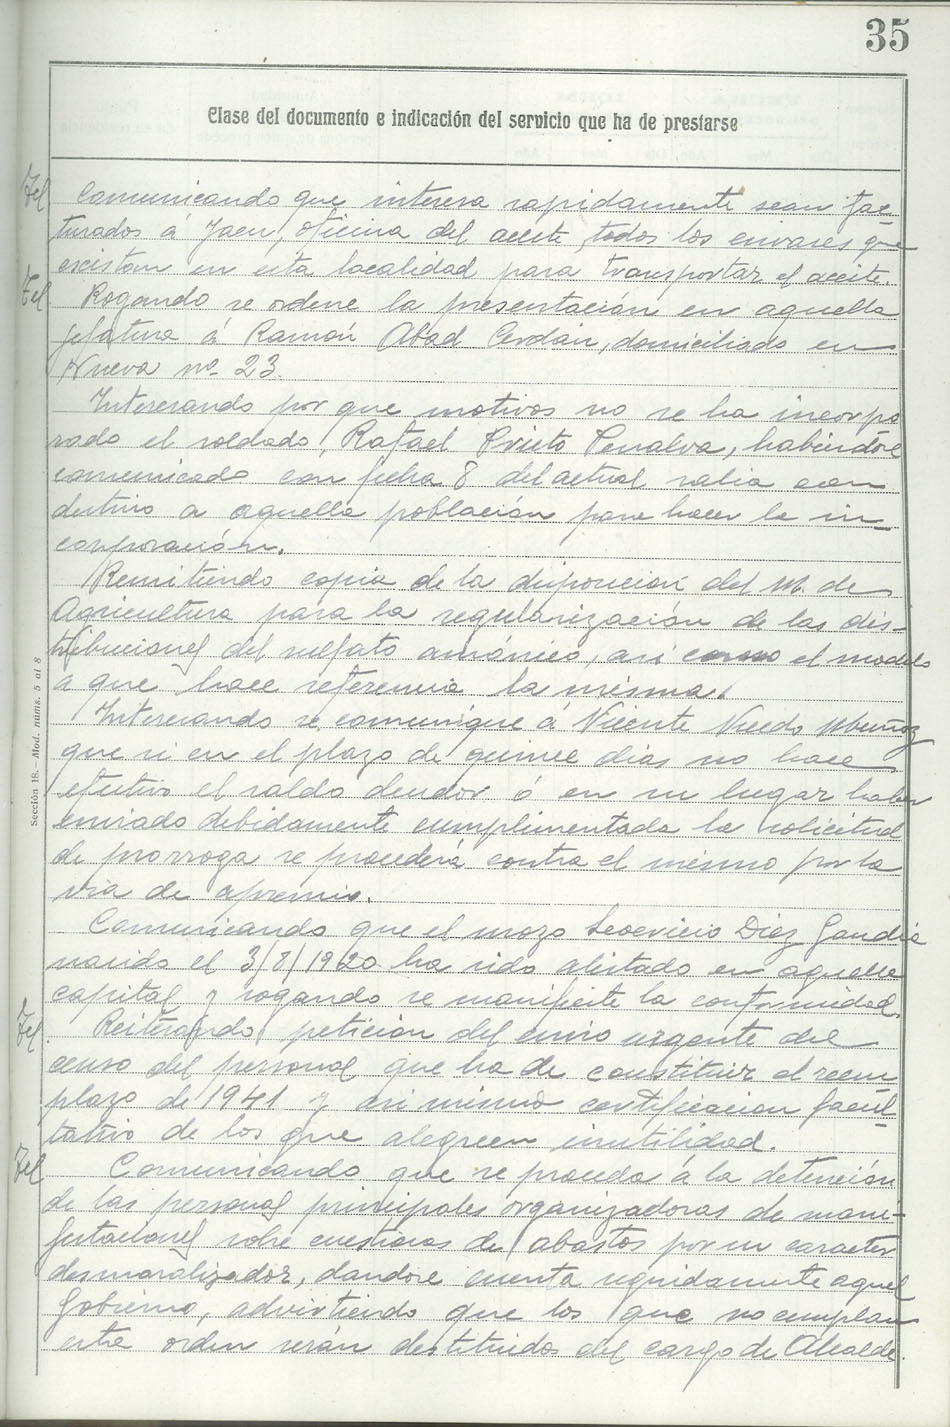 35
Clase del documento e indicación del servicio que ha de prestarse
Tel Comunicando que interesa rapidamente sean fac-
turados á Jaen, oficina del aceite, todos los envases que
existan en esta localidad para transportar el aceite.
Tel Rogando se ordene la presentación en aquella
jefatura á Ramón Abad Cerdán, domiciliado en
Nueva nº 23.
Interesando por que motivos no se ha incorpo
rado el soldado, Rafael Prieto Penalva, habiéndose
comunicado con fecha 8 del actual salia con
destino a aquella población para hacer la in-
corporación.
Remitiendo copia de la disposicion del M. de
Agricultura para la regularización de las dis-
tribuciones del sulfato amónico, asi como el modelo
a que hace referencia la misma.
Interesando se comunique á Vicente Muñoz
que si en el plazo de quince dias no hace
efectivo el saldo deudor ó en su lugar haber
enviado debidamente cumplimentada la solicitud
de prorroga se procederá contra el mismo por la
via de apremio.
Comunicando que el mozo Diez Gandia
nacido el 3/8/1920 ha sido alistado en aquella
capital y rogando se manifieste la conformidad.
Tel Reiterando petición del envio urgente del
censo del personal que ha de constituir el reem
plazo de 1941 y asi mismo certificacion facul
tativo de los que aleguen inutilidad.
Tel Comunicando que se proceda á la detención
de las personas principales organizadoras de mani-
festaciones sobre cuestiones de abastos por su caracter
desmoralizador, dandose cuenta rapidamente aquel
Gobierno, advirtiendo que los que no cumplan
esta orden serán destituidos del cargo de Alcalde.
Sección 18.-Mod. núms. 5 al 8